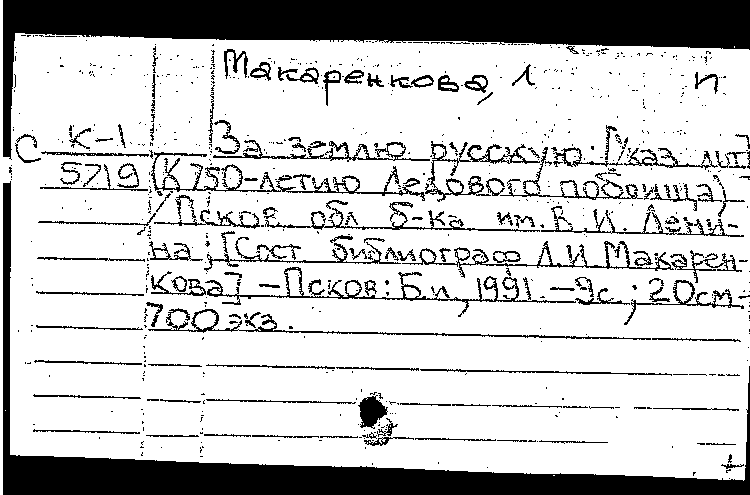 Макаренкова, Л п
С К-1 За землю русскую: [Указ. лит]
5719 (К 750-летию Ледового побоища)
/Псков. обл. б-ка им. В. И. Лени-
на; [Сост. библиограф Л.И. Макарен-
кова] – Псков: Б.и, 1991. – 9с.; 20см-
700 экз.